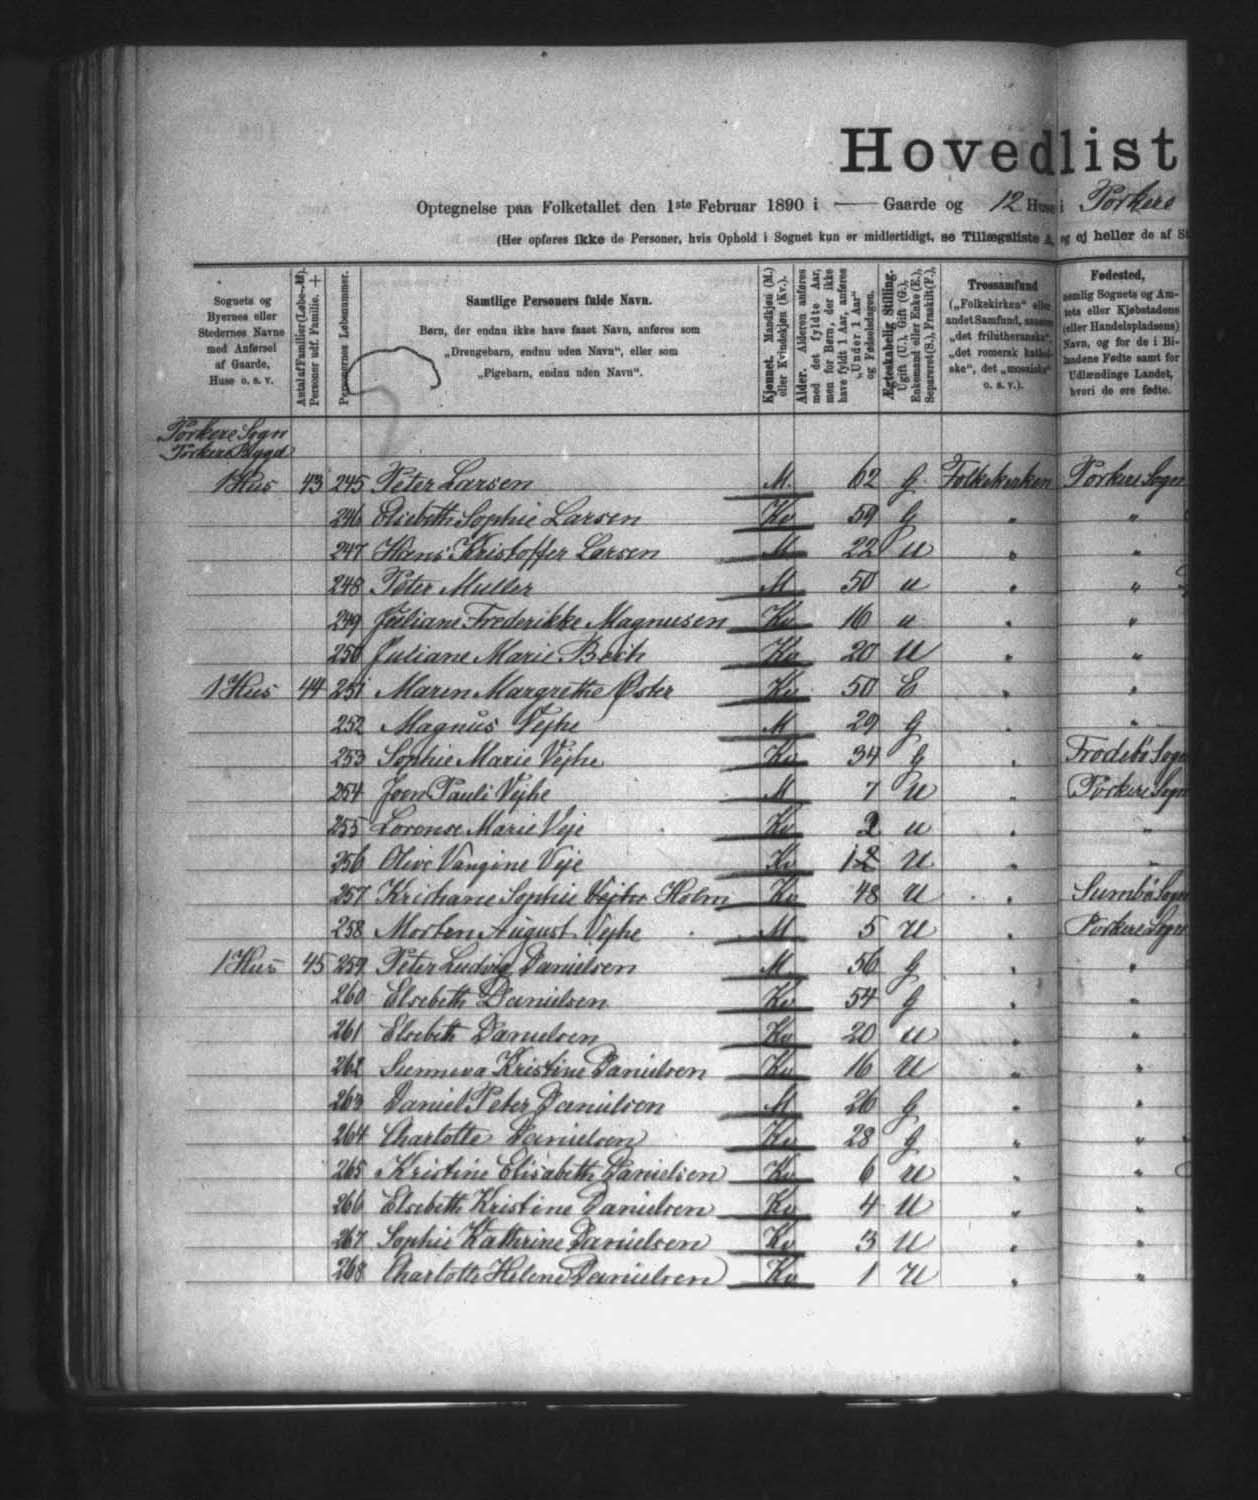 Hovedlist
Optegnelse paa Folketallet den 1ste Februar 1890 i — Gaarde og 12 Huse i Porkere
(Her opføres ikke de Personer, hvis Ophold i Sognet kun er midlertidigt, se Tillægsliste A, og ej heller de af St
Sognets og Byernes eller Stedernes Navne med Anførsel af Gaarde, Huse o. s. v.
Antal af Familier (Løbe-№). Personer udf. Familie. +
Personernes Løbenummer.
Samtlige Personers fulde Navn.
Børn, der endnu ikke have faaet Navn, anføres som
„Drengebarn, endnu uden Navn", eller som
„Pigebarn, endnu uden Navn".
Kjønnet. Mandkjøn (M.) eller Kvindekjøn (Kv.).
Alder. Alderen anføres med det fyldte Aar, men for Børn, der ikke have fyldt 1 Aar, anføres „Under 1 Aar" og Fødselsdagen.
Ægteskabelig Stilling. Ugift (U.), Gift (G.), Enkemand eller Enke (E.), Separeret (S.), Fraskilt (F.),
Trossamfund
(„Folkekirken" eller
andet Samfund, saasom
„det frilutheranske",
„det romersk kathol-
ske", det „mosaiske"
o. s. v.).
Fødested,
nemlig Sognets og Am-
tets eller Kjøbstadens
(eller Handelspladsens)
Navn, og for de i Bi-
landene Fødte samt for
Udlændinge Landet,
hvori de ere fødte.
Porkere Sogn
Porkere Bygd
1 Hus 43 245 Peter Larsen M. 62 G. Folkekirken Porkere Sogn
246 Elsebeth Sophie Larsen Kv 59 G " "
247 Hans Kristoffer Larsen M 22 U " "
248 Peter Muller M 50 u " "
249 Juliane Frederikke Magnusen Kv 16 u " "
250 Juliane Marie Bech Kv 20 U " "
1 Hus 44 251 Maren Margrethe Øster Kv 50 E " "
252 Magnus Vejhe M 29 G "
253 Sophie Marie Vejhe Kv 34 G " Frodebø Sogn
254 Joen Pauli Vejhe M 7 U " Porkere Sogn
255 Lorense Marie Veje Kv 2 u " "
256 Olive Vangine Veje Kv 12 U " "
257 Kristiane Sophie Vejhe Holm Kv 48 U " Sumbø Sogn
258 Morten August Vejhe M 5 U " Porkere Sogn
1 Hus 45 259 Peter Ludvig Danielsen M 56 G " "
260 Elsebeth Danielsen Kv 54 G " "
261 Elsebeth Danielsen Kv 20 U " "
262 Sunneva Kristine Danielsen Kv 16 U " "
263 Daniel Peter Danielsen M 26 G " "
264 Charlotte Danielsen Kv 28 G " "
265 Kristine Elisabeth Danielsen Kv 6 U " "
266 Elsebeth Kristine Danielsen Kv 4 U " "
267 Sophie Kathrine Danielsen Kv 3 U " "
268 Charlotte Helene Danielsen Kv 1 U " "